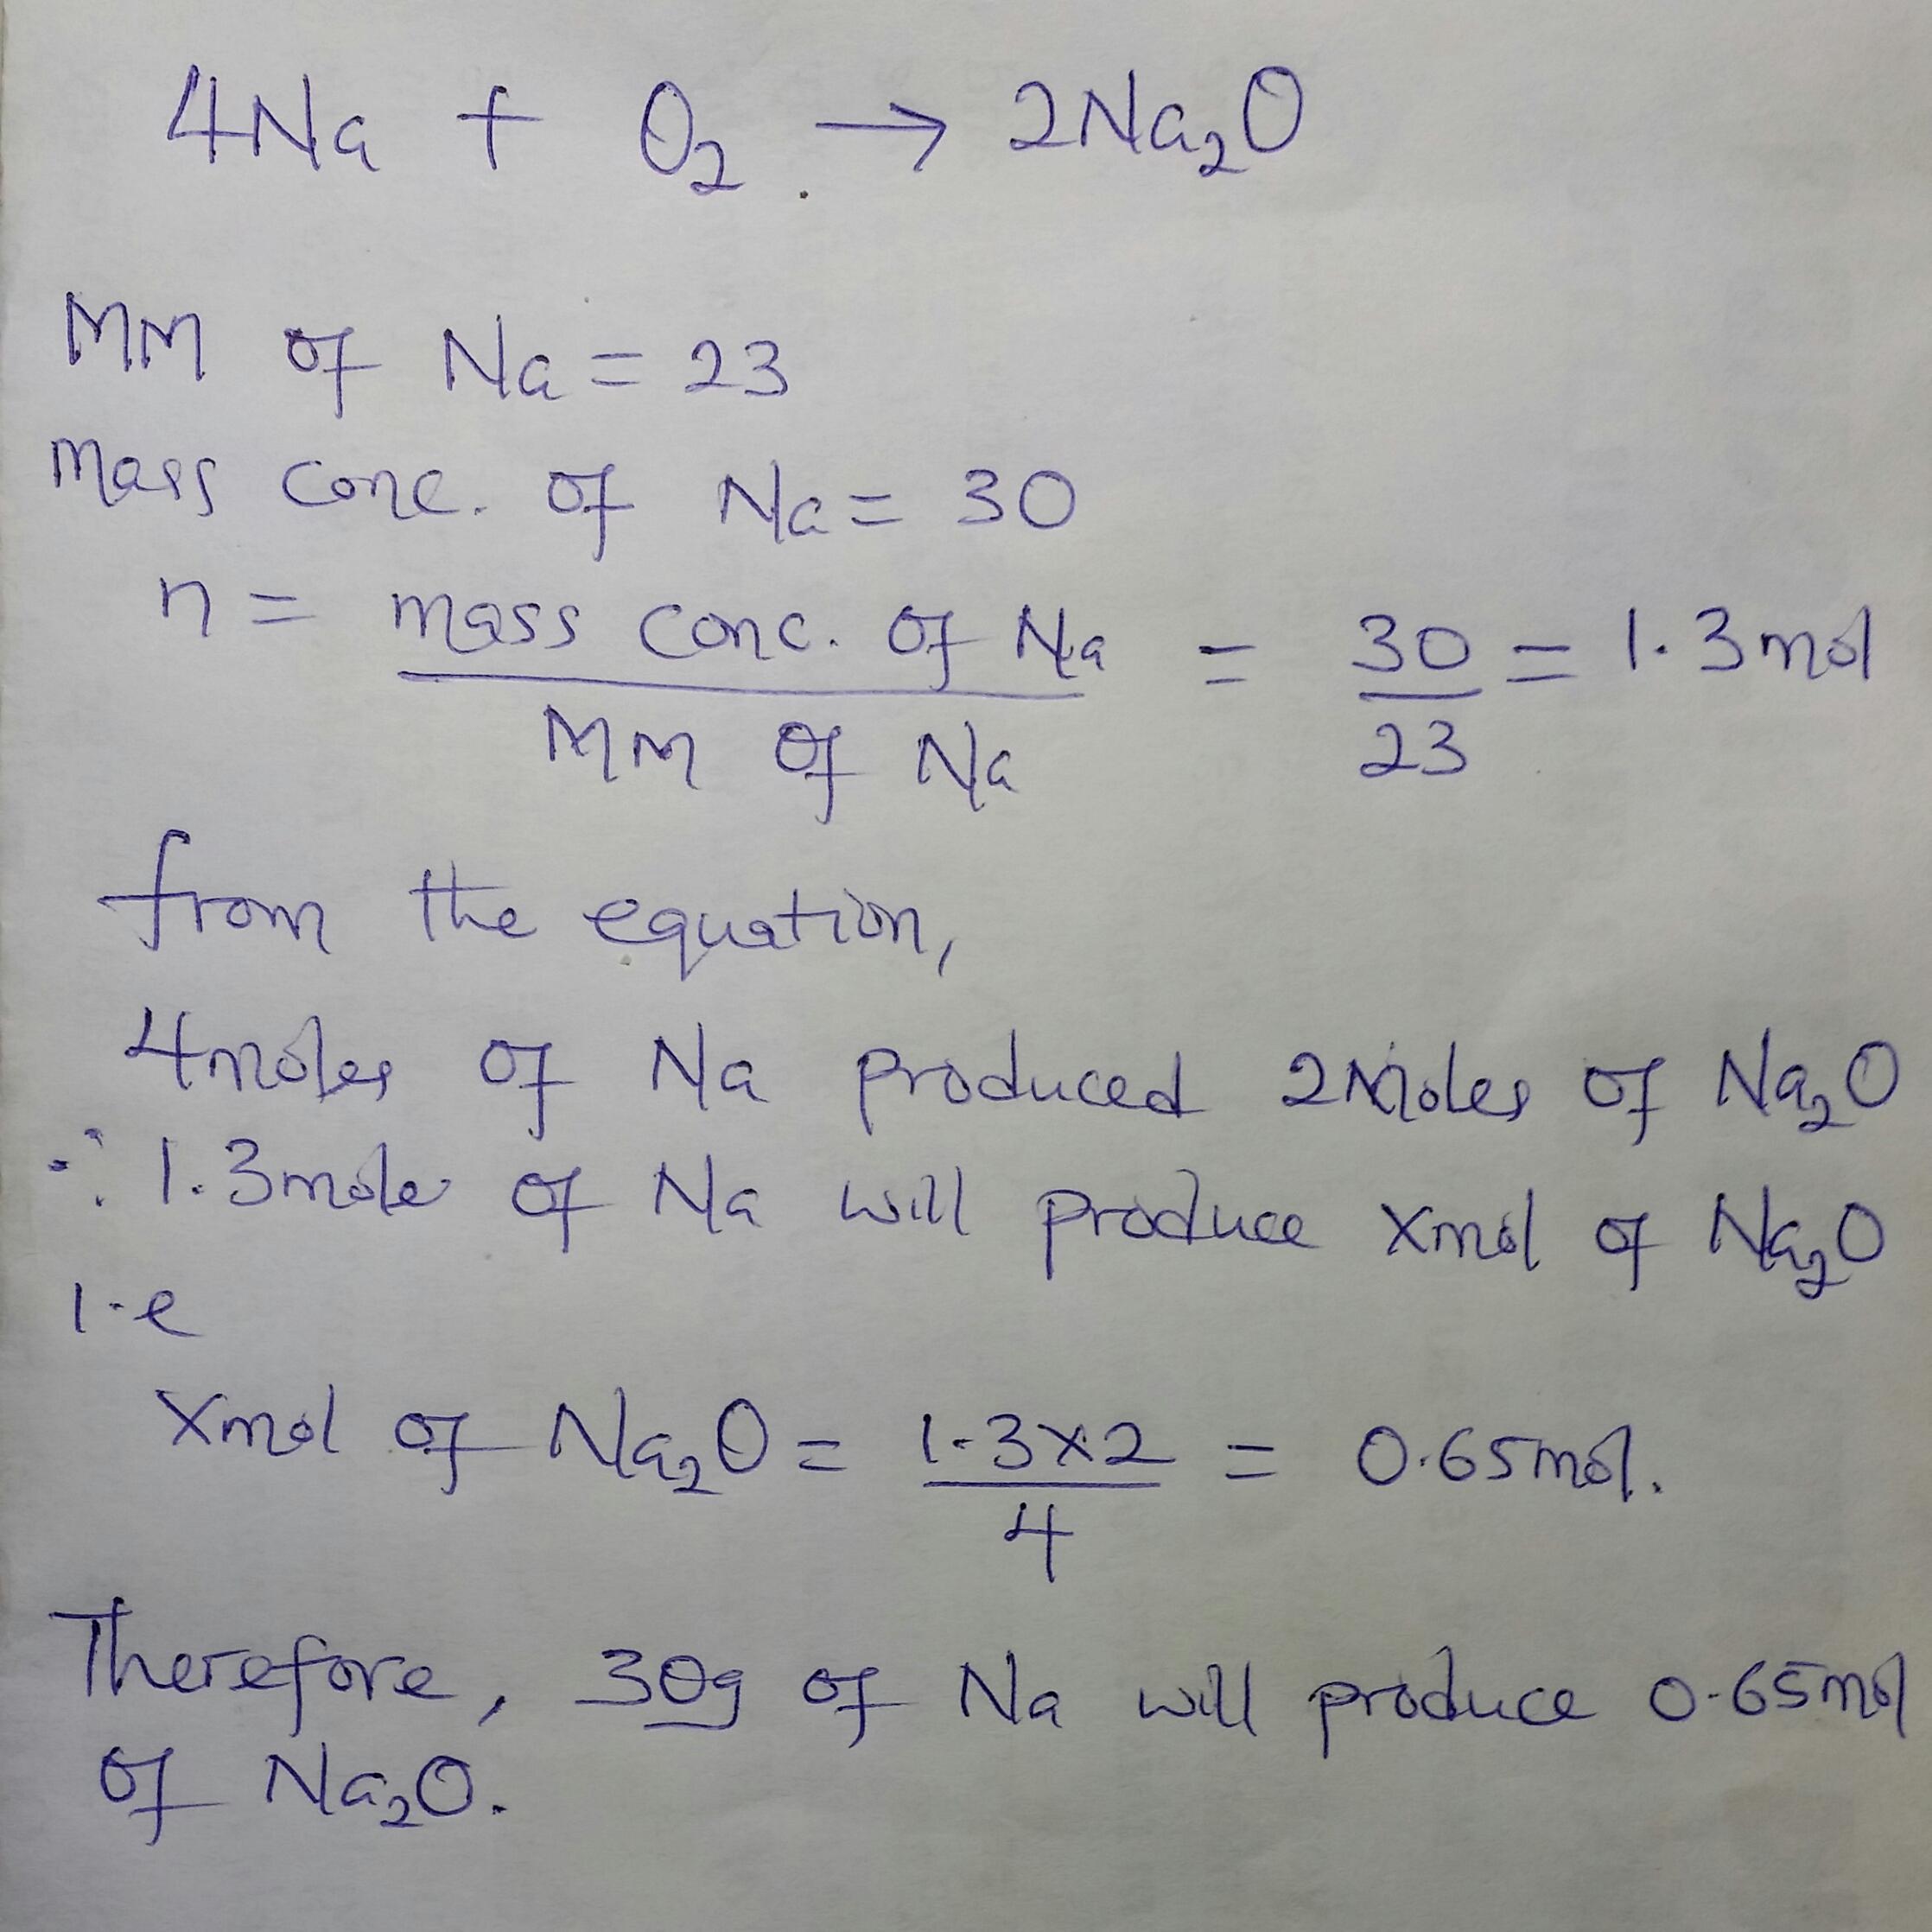 4Na + O₂ → 2Na₂O
MM of Na = 23
Mass conc. of Na = 30
n = mass conc. of Na / MM of Na = 30 / 23 = 1.3mol
from the equation,
4moles of Na produced 2Moles of Na₂O
∴ 1.3mole of Na will produce Xmol of Na₂O
I.e
Xmol of Na₂O = 1.3x2 / 4 = 0.65mol.
Therefore, 30g of Na will produce 0.65mol
of Na₂O.